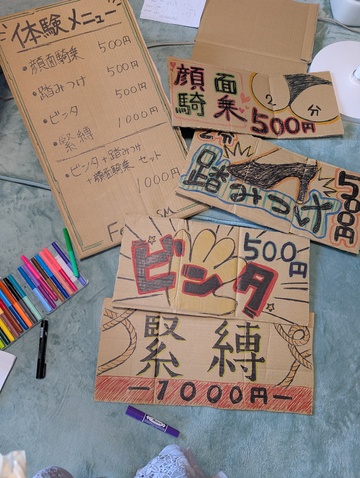 体験メニュー
・顔面騎乗 500円
・踏みつけ 500円
・ビンタ 500円
・緊縛 1000円
・ビンタ+踏みつけ
+顔面騎乗 セット
1000円
顔面
騎乗
2分
500円
2分
踏みつけ
500円
ビンタ
500円
緊縛
-1000円-